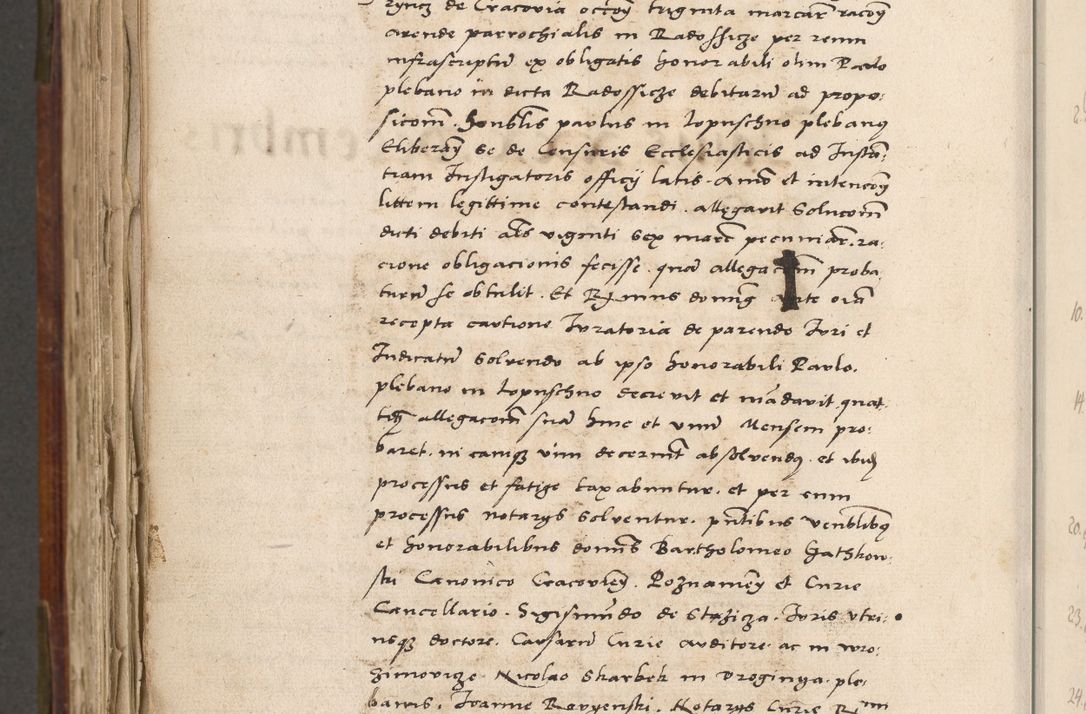 ryncz de Cracovia occoń triginta marcar racoń
arende parrochialis in Radossicze per reum
infrascriptū ex obligatis honorabili olim Paulo
plebano in dicta Radossicze debitarū ad propo:
sicoīm honblis paulus in lopuschno plebanꝰ
Eliberań se de Censuris Ecclesiasticis ad Instā:
tiam Instigatoris officij latis. Animo et intencoń
littem legittime contestandi. allegavit Solucoīm
dicti debiti als viginti sex marc pecuniar. ra:
cione obligacionis fecisse. quam allegacoīm proba:
turū se obtulit. Et R dominꝰ oiā
recepta cautione Iuratoria de parendo Iuri et
Iudicatū Solvendo ab ipso honorabili Paulo.
plebano in lopuschno decrevit et mādavit quat
allegacoīm suā hinc et unū Mensem pro:
baret. in eumqꝫ vim decernit absolvendū. et
processus et fatige taxabuntur. et per eum
processus notarys Solventur. pntibus venblibꝫ
et honorabilibus domīs Bartholomeo Gathkow:
ski Canonico Cracovień. Poznanień et Curie
Cancellario. Sigismūdo de Stezicza. Iuris utri:
usqꝫ doctore. Causarū Curie auditore ac in wro:
zimovicze Nicolao Skarbek in Droginya. ple:
banis. Joanne Notarys Curie R